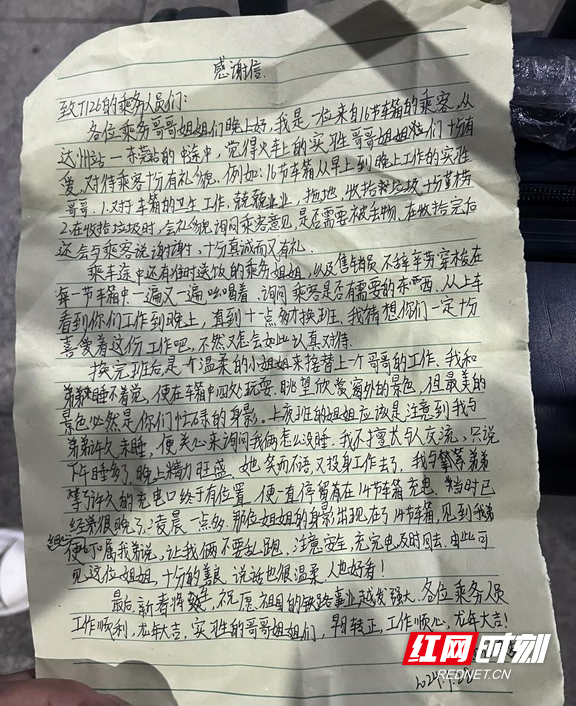 感谢信
致T126的乘务人员们:
各位乘务哥哥姐姐们晚上好,我是一位来自16节车箱的乘客,从
达州站一东莞站的中途中,觉得火车上的实习生哥哥姐姐们十分有
爱,对待乘客十分有礼貌。例如:16节车箱从早上到晚上工作的实习生
哥哥:1.对于车箱的卫生工作,兢兢业业,拖地,收拾垃圾十分勤劳
2.在收拾垃圾时,会礼貌询问乘客意见,是否需要被丢物,在收拾完后
还会与乘客说谢谢,十分真诚而又有礼.
乘车途中还有准时送饭的乘务姐姐,以及售销员不辞辛劳穿梭在
每一节车箱中一遍又一遍吆喝着、询问乘客是否有需要的东西,从上车
看到你们工作到晚上,直到十一点多才换班、我猜想你们一定十分
喜爱着这份工作吧,不然又怎会如此认真对待.
换完班后是一个温柔的小姐姐来接替上一个哥哥的工作、我和
弟弟睡不着觉,便在车箱中四处玩耍、眺望欣赏窗外的景色,但最美的
景色必然是你们忙碌的身影。上夜班的姐姐应该是注意到我与
弟弟许久未睡,便关心来询问我俩怎么没睡.我不擅长与人交流,只说
下午睡多了,晚上精力旺盛.她笑而不语又投身工作去了,我与弟弟
等了许久的充电口终于有位置,便一直停留在14节车箱充电,当时已
经很晚了,凌晨一点多,那位姐姐的身影出现在了14节车箱,见到我弟
便叮属我弟说,让我俩不要乱跑,注意安全,充完电及时回去.由此可
见这位姐姐,十分的善良,说话也很温柔,人也好看!
最后,新春将至,祝愿祖国的铁路事业越发强大.各位乘务员
工作顺利,龙年大吉,实习生的哥哥姐姐们,早日转正,工作顺心,龙年大吉!
红网时刻
REDNET.CN